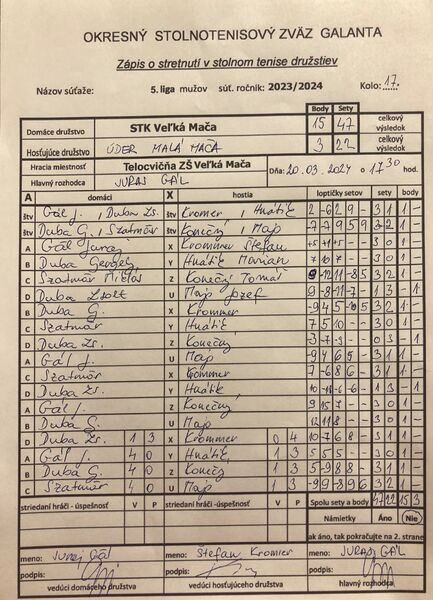 OKRESNÝ STOLNOTENISOVÝ ZVÄZ GALANTA
Zápis o stretnutí v stolnom tenise družstiev
Názov súťaže: 5. liga mužov súť. ročník: 2023/2024 Kolo: 17.
Body Sety
Domáce družstvo STK Veľká Mača 15 47 celkový výsledok
Hosťujúce družstvo ÚDER MALÁ MAČA 3 22 celkový výsledok
Hracia miestnosť Telocvičňa ZŠ Veľká Mača Dňa: 20.03.2024 o 17 30 hod.
Hlavný rozhodca JURAJ GÁL
A domáci X hostia loptičky setov sety body
štv Gál J., Duba Zs. štv Kromer, Hnátik 2 -6 2 9 - 3 1 1 -
štv Duba G., Szatmár štv Konečný, Map -7 7 9 5 9 3 2 1 -
A Gál Juraj X Krommer Štefan 3 0 1 -
B Duba Gergely Y Hnátik Marian 7 10 7 - - 3 0 1 -
C Szatmár Miklós Z Konečný Tomáš 9 -12 11 -8 5 3 2 1 -
D Duba Zsolt U Map Jozef 9 -8 -11 -7 - 1 3 - 1
B Duba G. X Krommer 3 2 1 -
C Szatmár Y Hnátik 7 5 10 - - 3 0 1 -
D Duba Zs. Z Konečný -3 -7 -3 - - 0 3 - 1
A Gál J. U Map -9 4 6 5 - 3 1 1 -
C Szatmár X 7 -6 8 6 - 3 1 1 -
D Duba Zs. Y Hnátik 1 3 - 1
A Gál J. Z Konečný 9 15 7 - - 3 0 1 -
B Duba G. U Map 12 11 8 - - 3 0 1 -
D Duba Zs. 1 3 X Krommer 0 4 3 1 1 -
A Gál J. 4 0 Y Hnátik 1 3 5 5 5 - - 3 0 1 -
B Duba G. 4 0 Z Konečný 1 3 5 -9 8 8 - 3 1 1 -
C Szatmár 4 0 U Map 1 3 -9 9 -8 9 6 3 2 1 -
striedaní hráči - úspešnosť V P striedaní hráči - úspešnosť V P Spolu sety a body 47 22 15 3
Námietky Áno Nie
ak áno, tak pokračujte na 2. strane
meno: Juraj Gál meno: Stefan Kromer meno: JURAJ GÁL
podpis: podpis: podpis:
vedúci domáceho družstva vedúci hosťujúceho družstva hlavný rozhodca